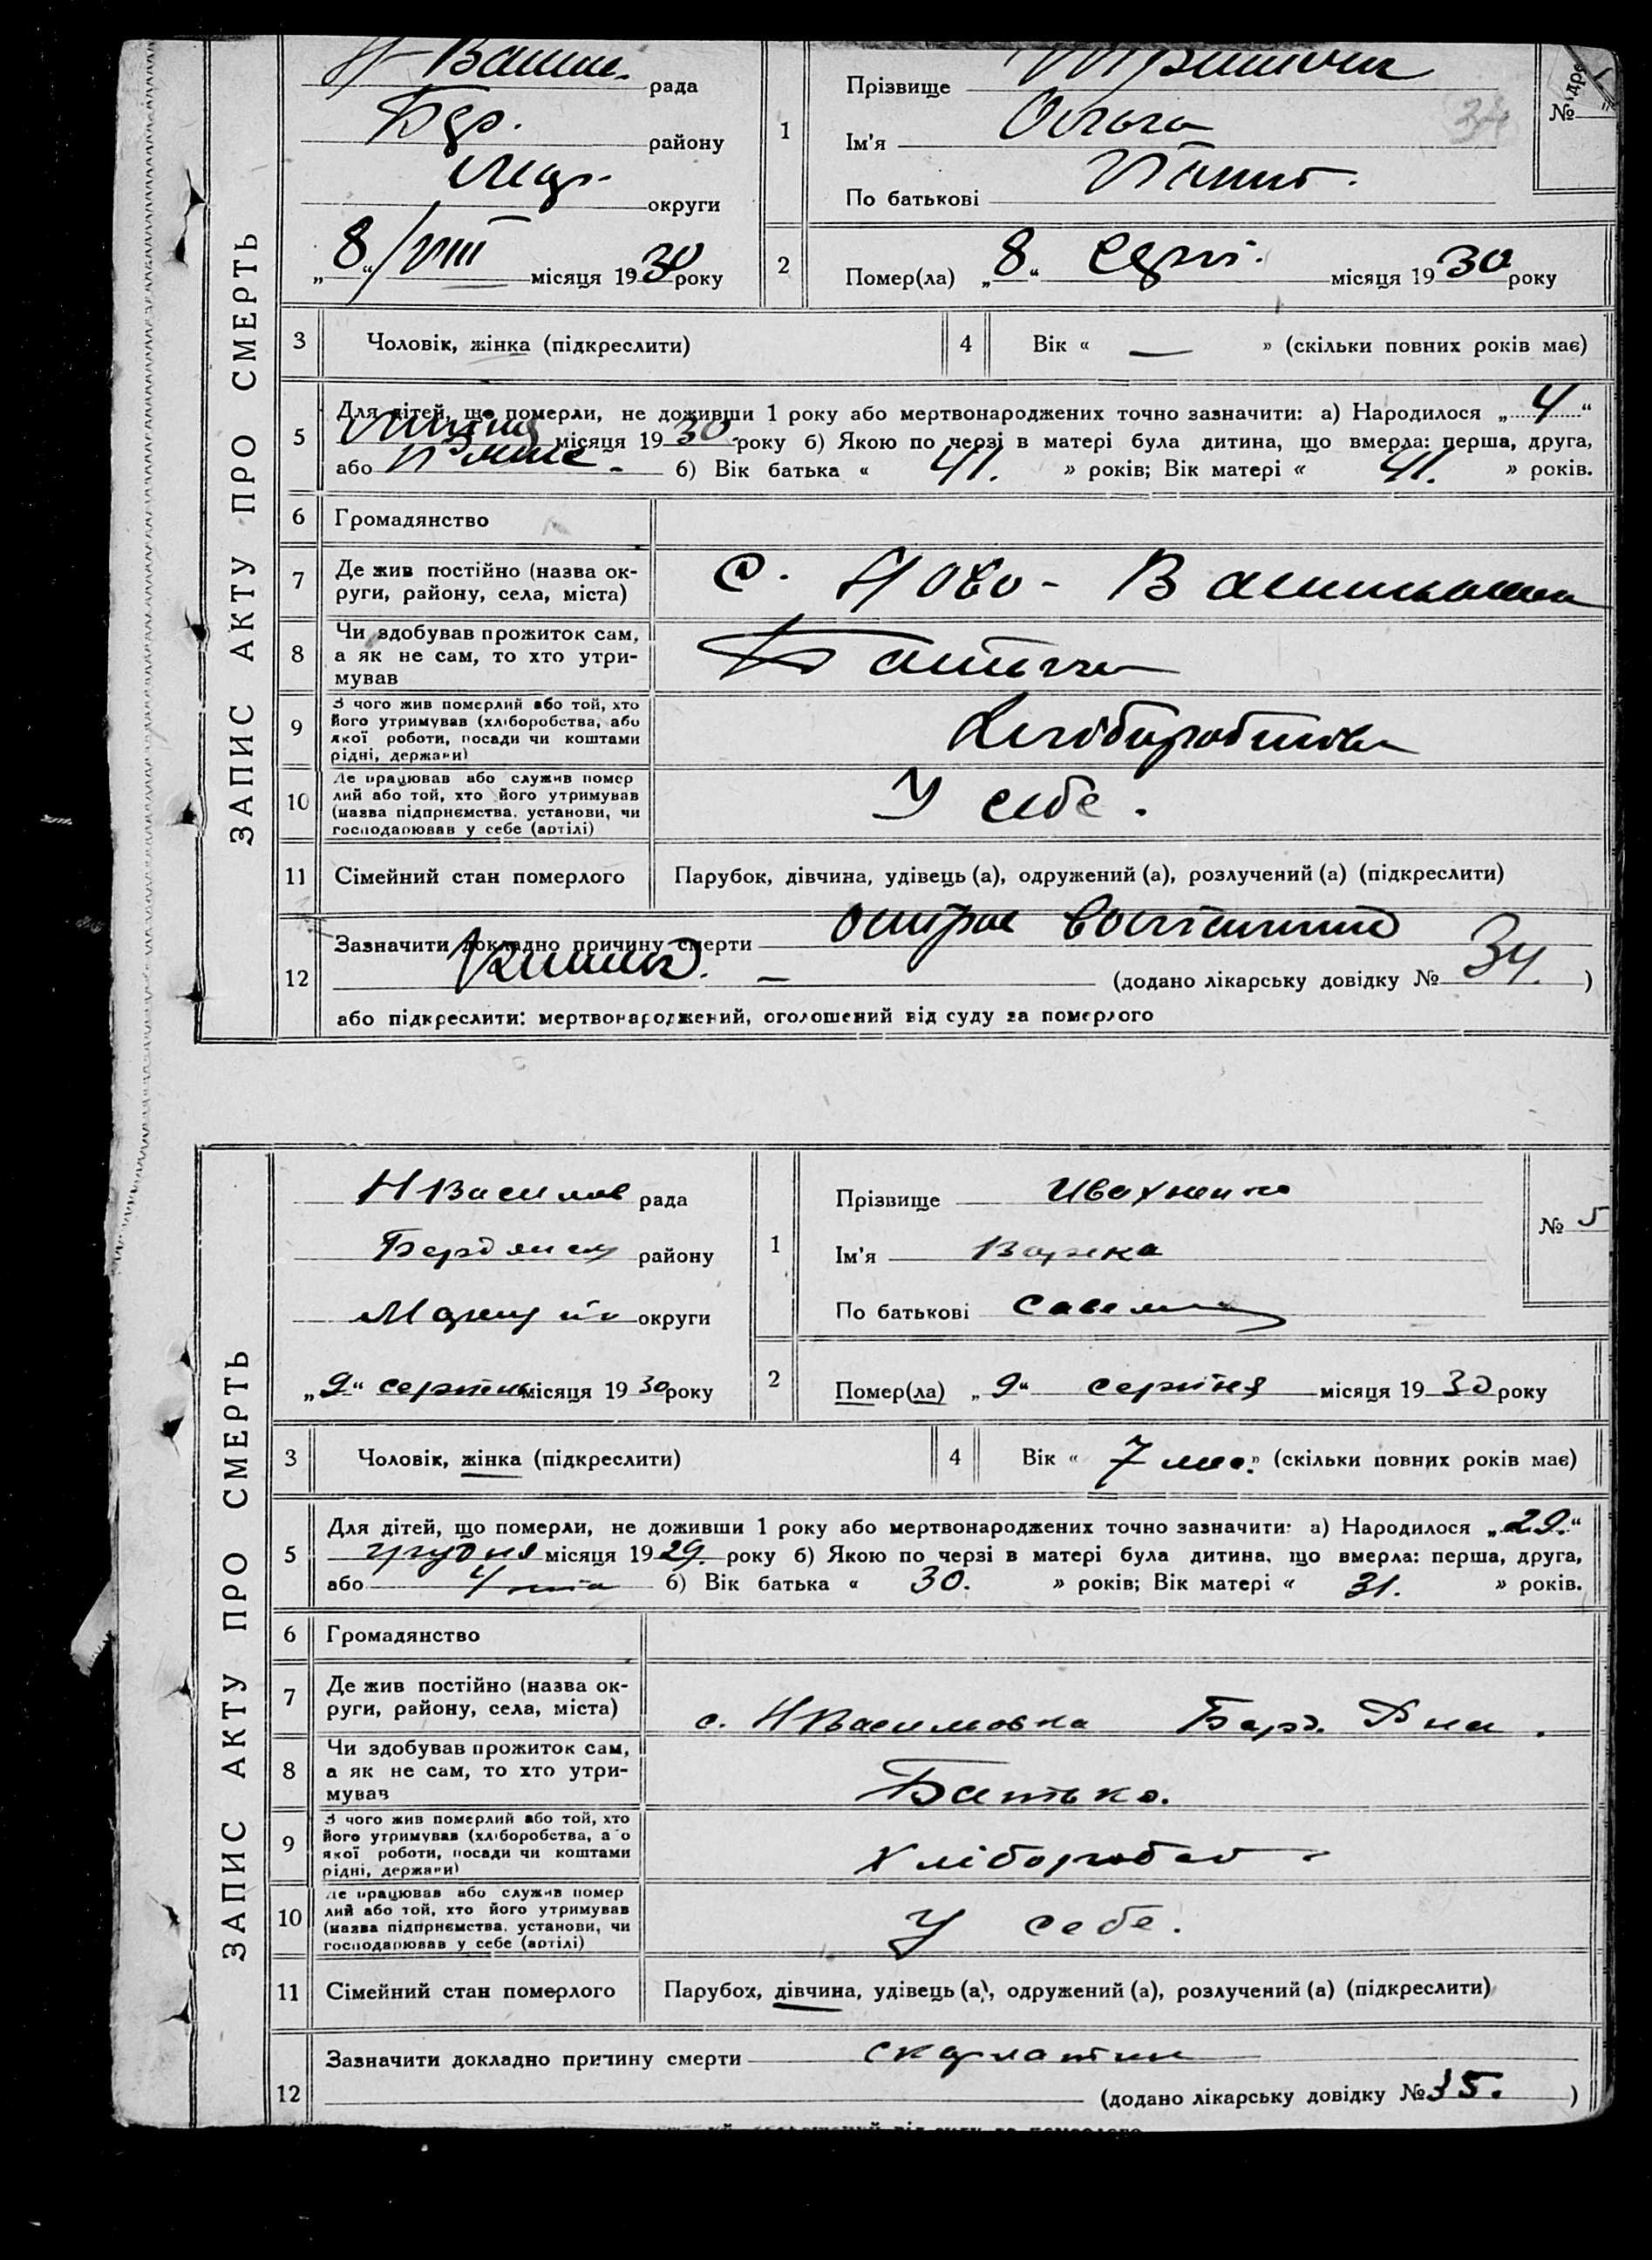 ЗАПИС АКТУ ПРО СМЕРТЬ
рада
Бер. району
Мар. округи
„8“/VIII місяця 1930 року
1
Прізвище
Ім'я Ольга
По батькові
№
34
2
Помер(ла) „8“ Серп. місяця 1930 року
3
Чоловік, жінка (підкреслити)
4
Вік « — » (скільки повних років має)
5
Для дітей, що померли, не доживши 1 року або мертвонароджених точно зазначити: а) Народилося „4“
місяця 1930 року б) Якою по черзі в матері була дитина, що вмерла: перша, друга,
або б) Вік батька « 41. » років; Вік матері « 41. » років.
6
Громадянство
7
Де жив постійно (назва ок-
руги, району, села, міста)
с. Ново-
8
Чи здобував прожиток сам,
а як не сам, то хто утри-
мував
Батьки
9
З чого жив померлий або той, хто
його утримував (хліборобства, або
якої роботи, посади чи коштами
рідні, держави)
10
Де працював або служив помер
лий або той, хто його утримував
(назва підприємства, установи, чи
господарював у себе (артілі)
У себе.
11
Сімейний стан померлого
Парубок, дівчина, удівець (а), одружений (а), розлучений (а) (підкреслити)
12
Зазначити докладно причину смерти
(додано лікарську довідку № 34. )
або підкреслити: мертвонароджений, оголошений від суду за померлого
ЗАПИС АКТУ ПРО СМЕРТЬ
Н Василів рада
Бердянськ району
округи
„9“ серпня місяця 1930 року
1
Прізвище Ивахненко
Ім'я Варка
По батькові
№ 5
2
Помер(ла) „9“ серпня місяця 1930 року
3
Чоловік, жінка (підкреслити)
4
Вік « 7 міс. » (скільки повних років має)
5
Для дітей, що померли, не доживши 1 року або мертвонароджених точно зазначити: а) Народилося „29.“
грудня місяця 1929. року б) Якою по черзі в матері була дитина, що вмерла: перша, друга,
або б) Вік батька « 30. » років; Вік матері « 31. » років.
6
Громадянство
7
Де жив постійно (назва ок-
руги, району, села, міста)
с. НВасиловка Берд. Р на.
8
Чи здобував прожиток сам,
а як не сам, то хто утри-
мував
Батько.
9
З чого жив померлий або той, хто
його утримував (хліборобства, або
якої роботи, посади чи коштами
рідні, держави)
10
Де працював або служив помер
лий або той, хто його утримував
(назва підприємства, установи, чи
господарював у себе (артілі)
У себе.
11
Сімейний стан померлого
Парубок, дівчина, удівець (а), одружений (а), розлучений (а) (підкреслити)
12
Зазначити докладно причину смерти скарлатин
(додано лікарську довідку № 35. )